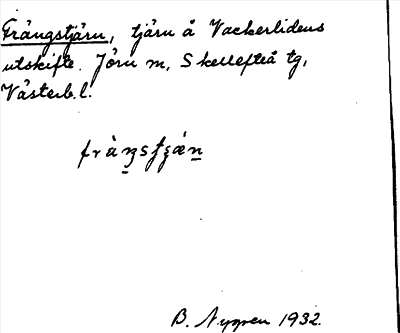 Frängstjärn, tjärn å Vackerlidens
utskifte. Jörn m, Skellefteå tg,
Västerb.l.
B. Nygren 1932.